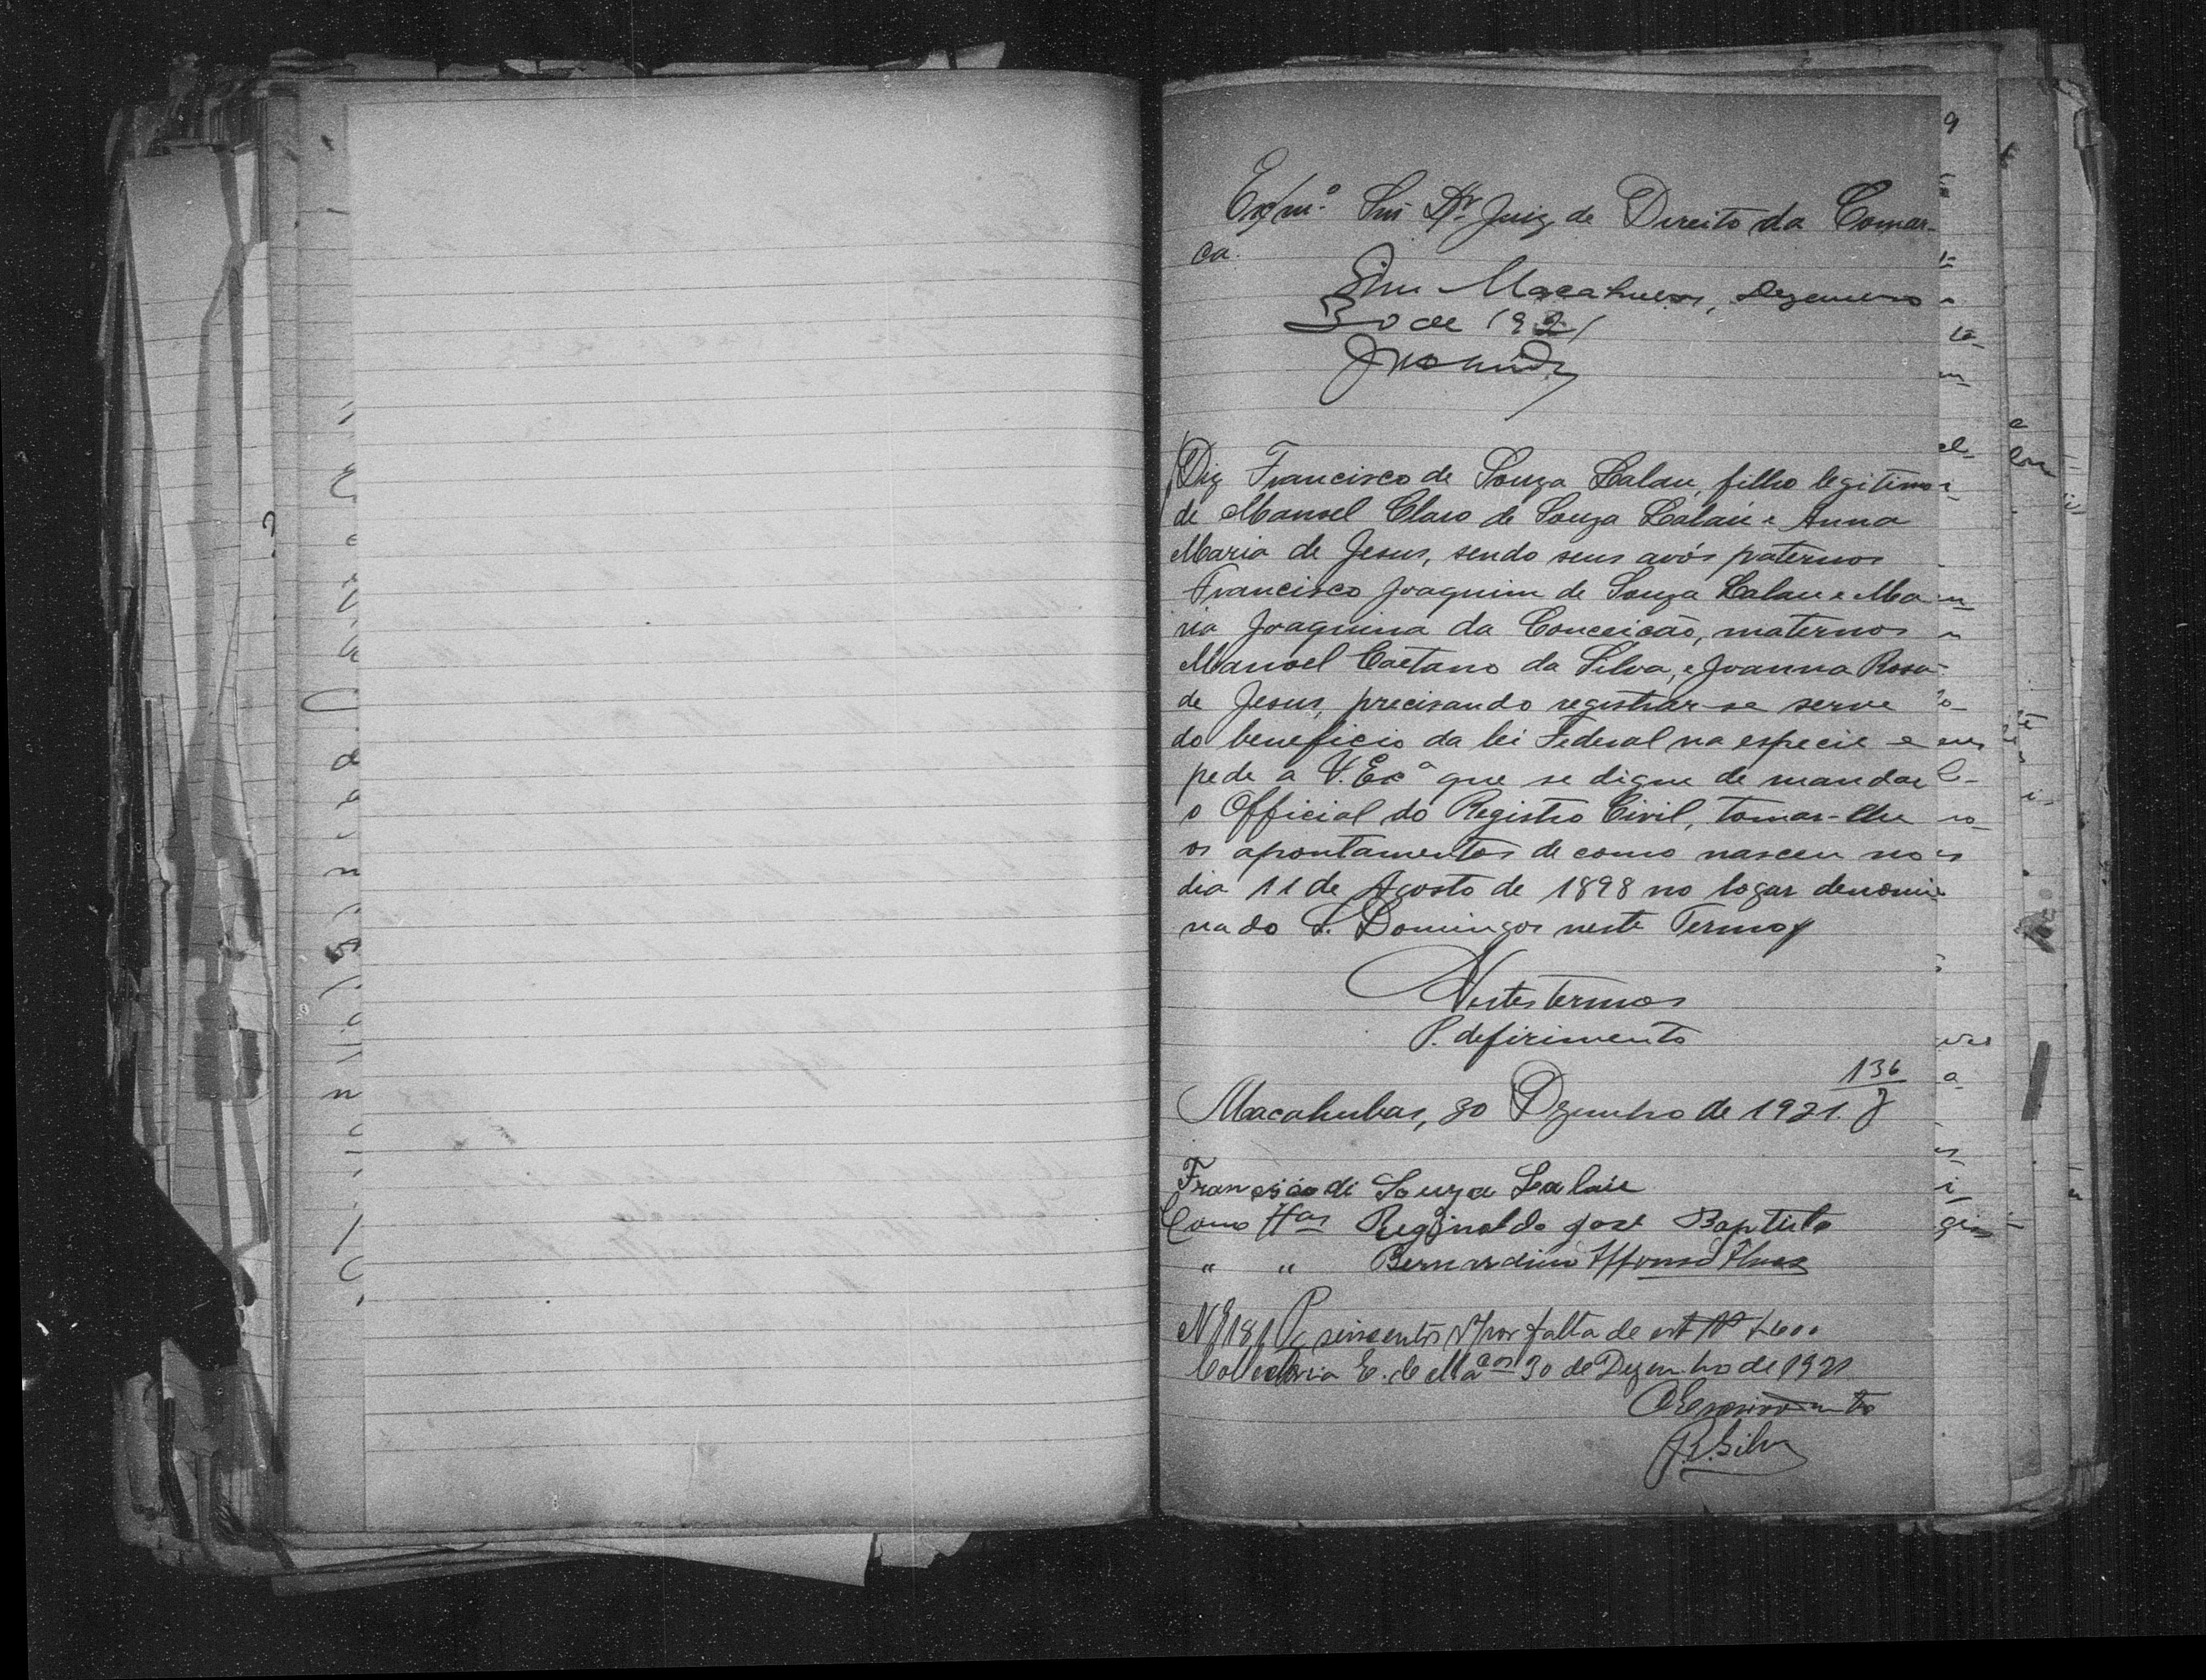 Exmº Snr Dr Juiz de Direito da Comar-
ca.
Sim Macahubas, Dezembro
30 de 1921
Diz Francisco de Souza Lalau, filho legitimo
de Manoel Claro de Souza Lalau e Anna
Maria de Jesus, sendo seus avós paternos
Francisco Joaquim de Souza Lalau e Ma
ria Joaquina da Conceicão, maternos
Manoel Caetano da Silva, e Joanna Rosa
de Jesus, precisando registrar-se serve
do beneficio da lei Federal na especie e
pede a V. Exª que se digne de mandar
o Official do Registro Civil, tomar-lhe
os apontamentos de como nasceu no
dia 11 de Agosto de 1898 no logar denomi
nado S. Domingos neste Termo
Nestes termos
P. defirimento
136
Macahubas, 30 Dezembro de 1921.
Francisco di Souza Lalau
Como ttas Reginaldo José Baptista
" " Bernardino Affonso Alves
Nº 181 Pg seiscentos por falta de est
Collectoria E. de Macas 30 de Dezembro de 1921
Silva